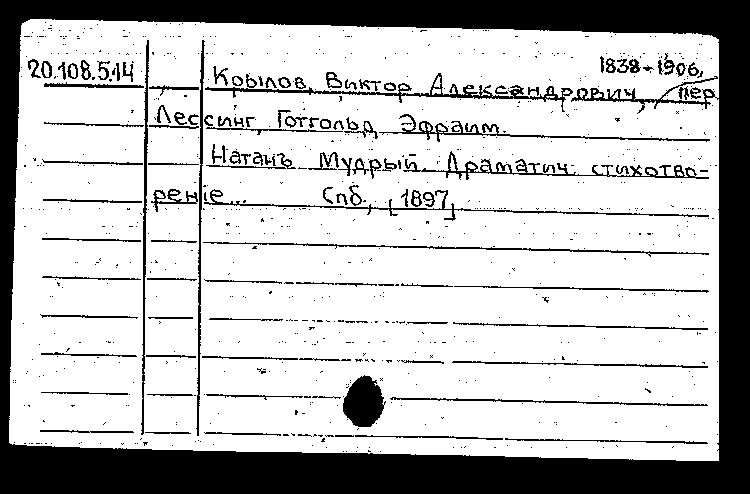 1838-1906,
20.108.5.14 Крылов, Виктор Александрович, пер
Лессинг, Готгольд Эфраим.
Натанъ Мудрый. Драматич. стихотво-
реніе... Спб., [1897]